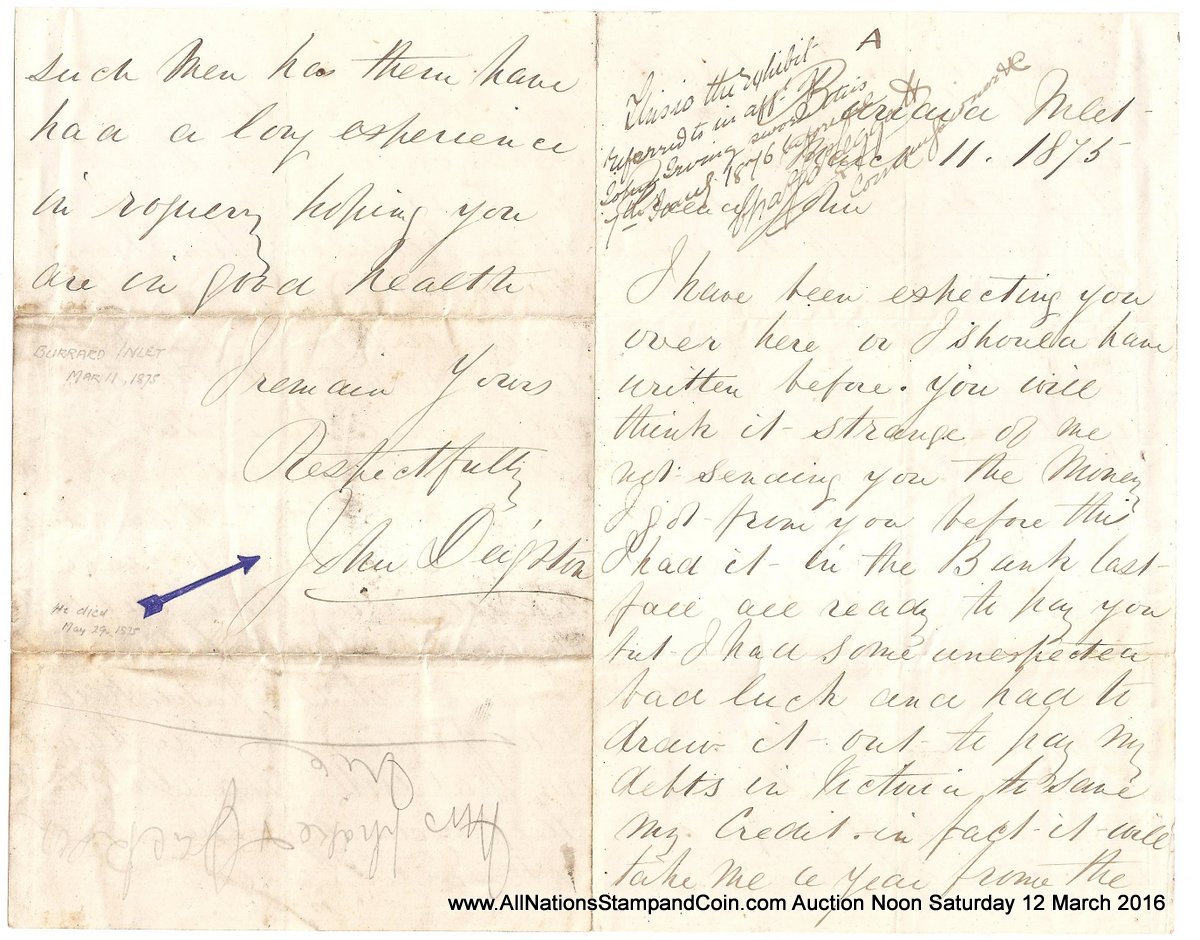 A
This is the Exhibit
referred to in aff't of
John Irving sworn this
7th Jany 1876 before me
Burrard Inlet
March 11. 1875
John
I have been expecting you
over here or I should have
written before. you will
think it strange of me
not sending you the Money
I got from you before this
I had it in the Bank last
fall all ready to pay you
but I had some unexpected
bad luck and had to
draw it out to pay my
debts in Victoria to save
my Credit. in fact it will
take me a year frome the
such Men has them have
had a long experience
in roguery hoping you
are in good health
I remain Yours
Respectfully
John Deighton
BURRARD INLET
MAR 11, 1875
He died
May 29, 1875
www.AllNationsStampandCoin.com Auction Noon Saturday 12 March 2016